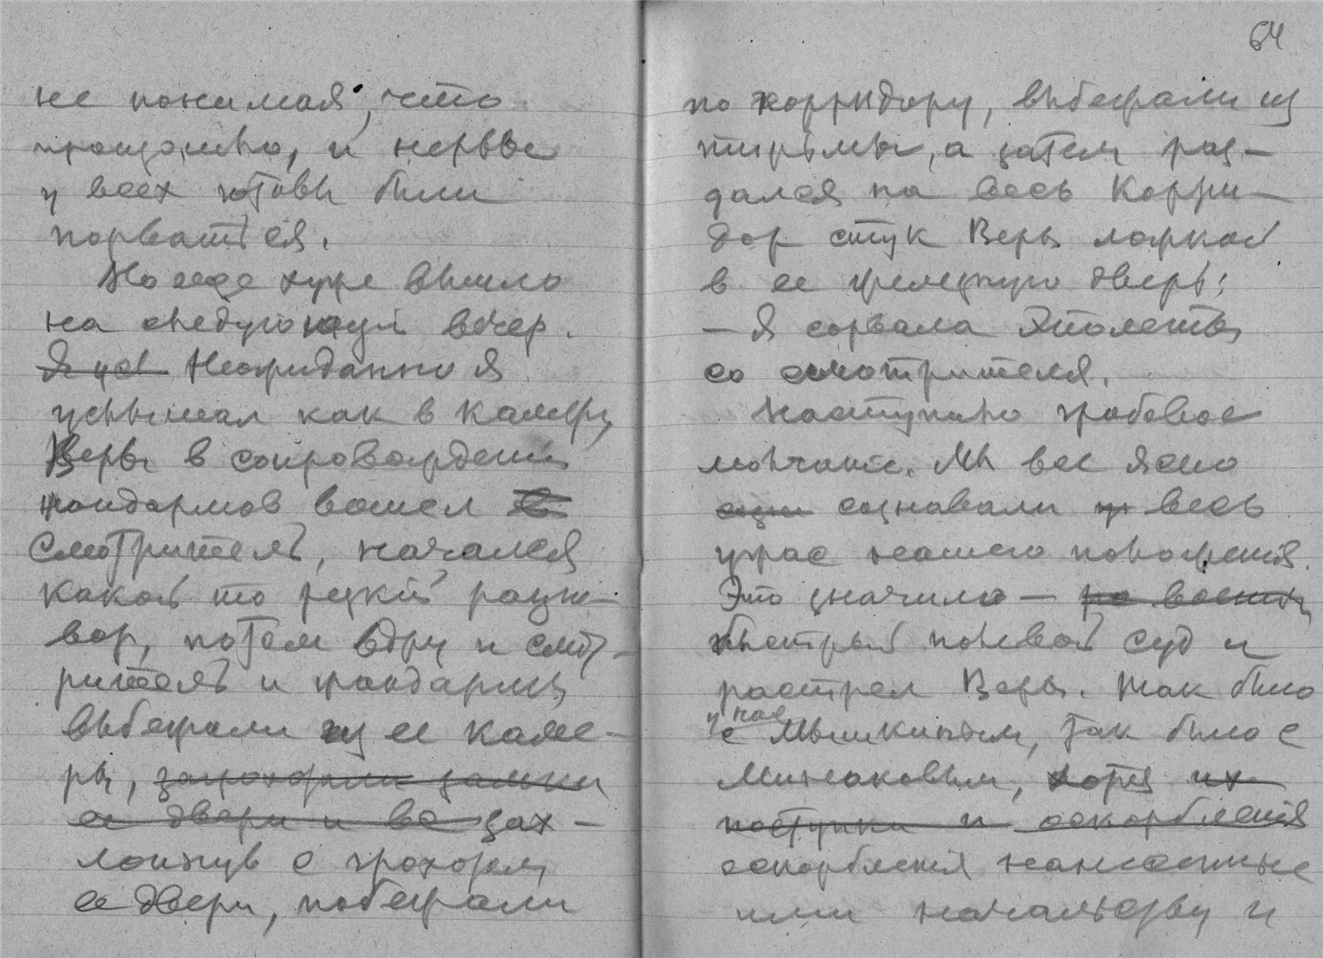 не понимая, что
произошло, и нервы
у всех готовы были
порваться.
Но еще хуже вышло
на следующий вечер.
Я уж Неожиданно я
услышал как в камеру
Веры в сопровождении
жандармов вошел
смотритель, начался
какой то резкий разго-
вор, потом вдруг и смот-
ритель и жандармы
выбежали из ее каме-
ры, захлопнули замки
ее двери и все зах-
лопнув с грохотом
ее двери, побежали
64
по корридору, выбежали из
тюрьмы, а затем раз-
дался на весь Корри-
дор стук Веры ложкой
в ее железную дверь:
— Я сорвала эполеты
со смотрителя.
Наступило гробовое
молчание. Мы все ясно
сознавали весь
ужас нашего положения.
Это значило — по военн
быстрый полевой суд и
расстрел Веры. Так было
у нас
с Мышкиным, так было с
Минаковым, хотя их
поступки и оскорбления
оскорбления нанесенные
ими начальству и